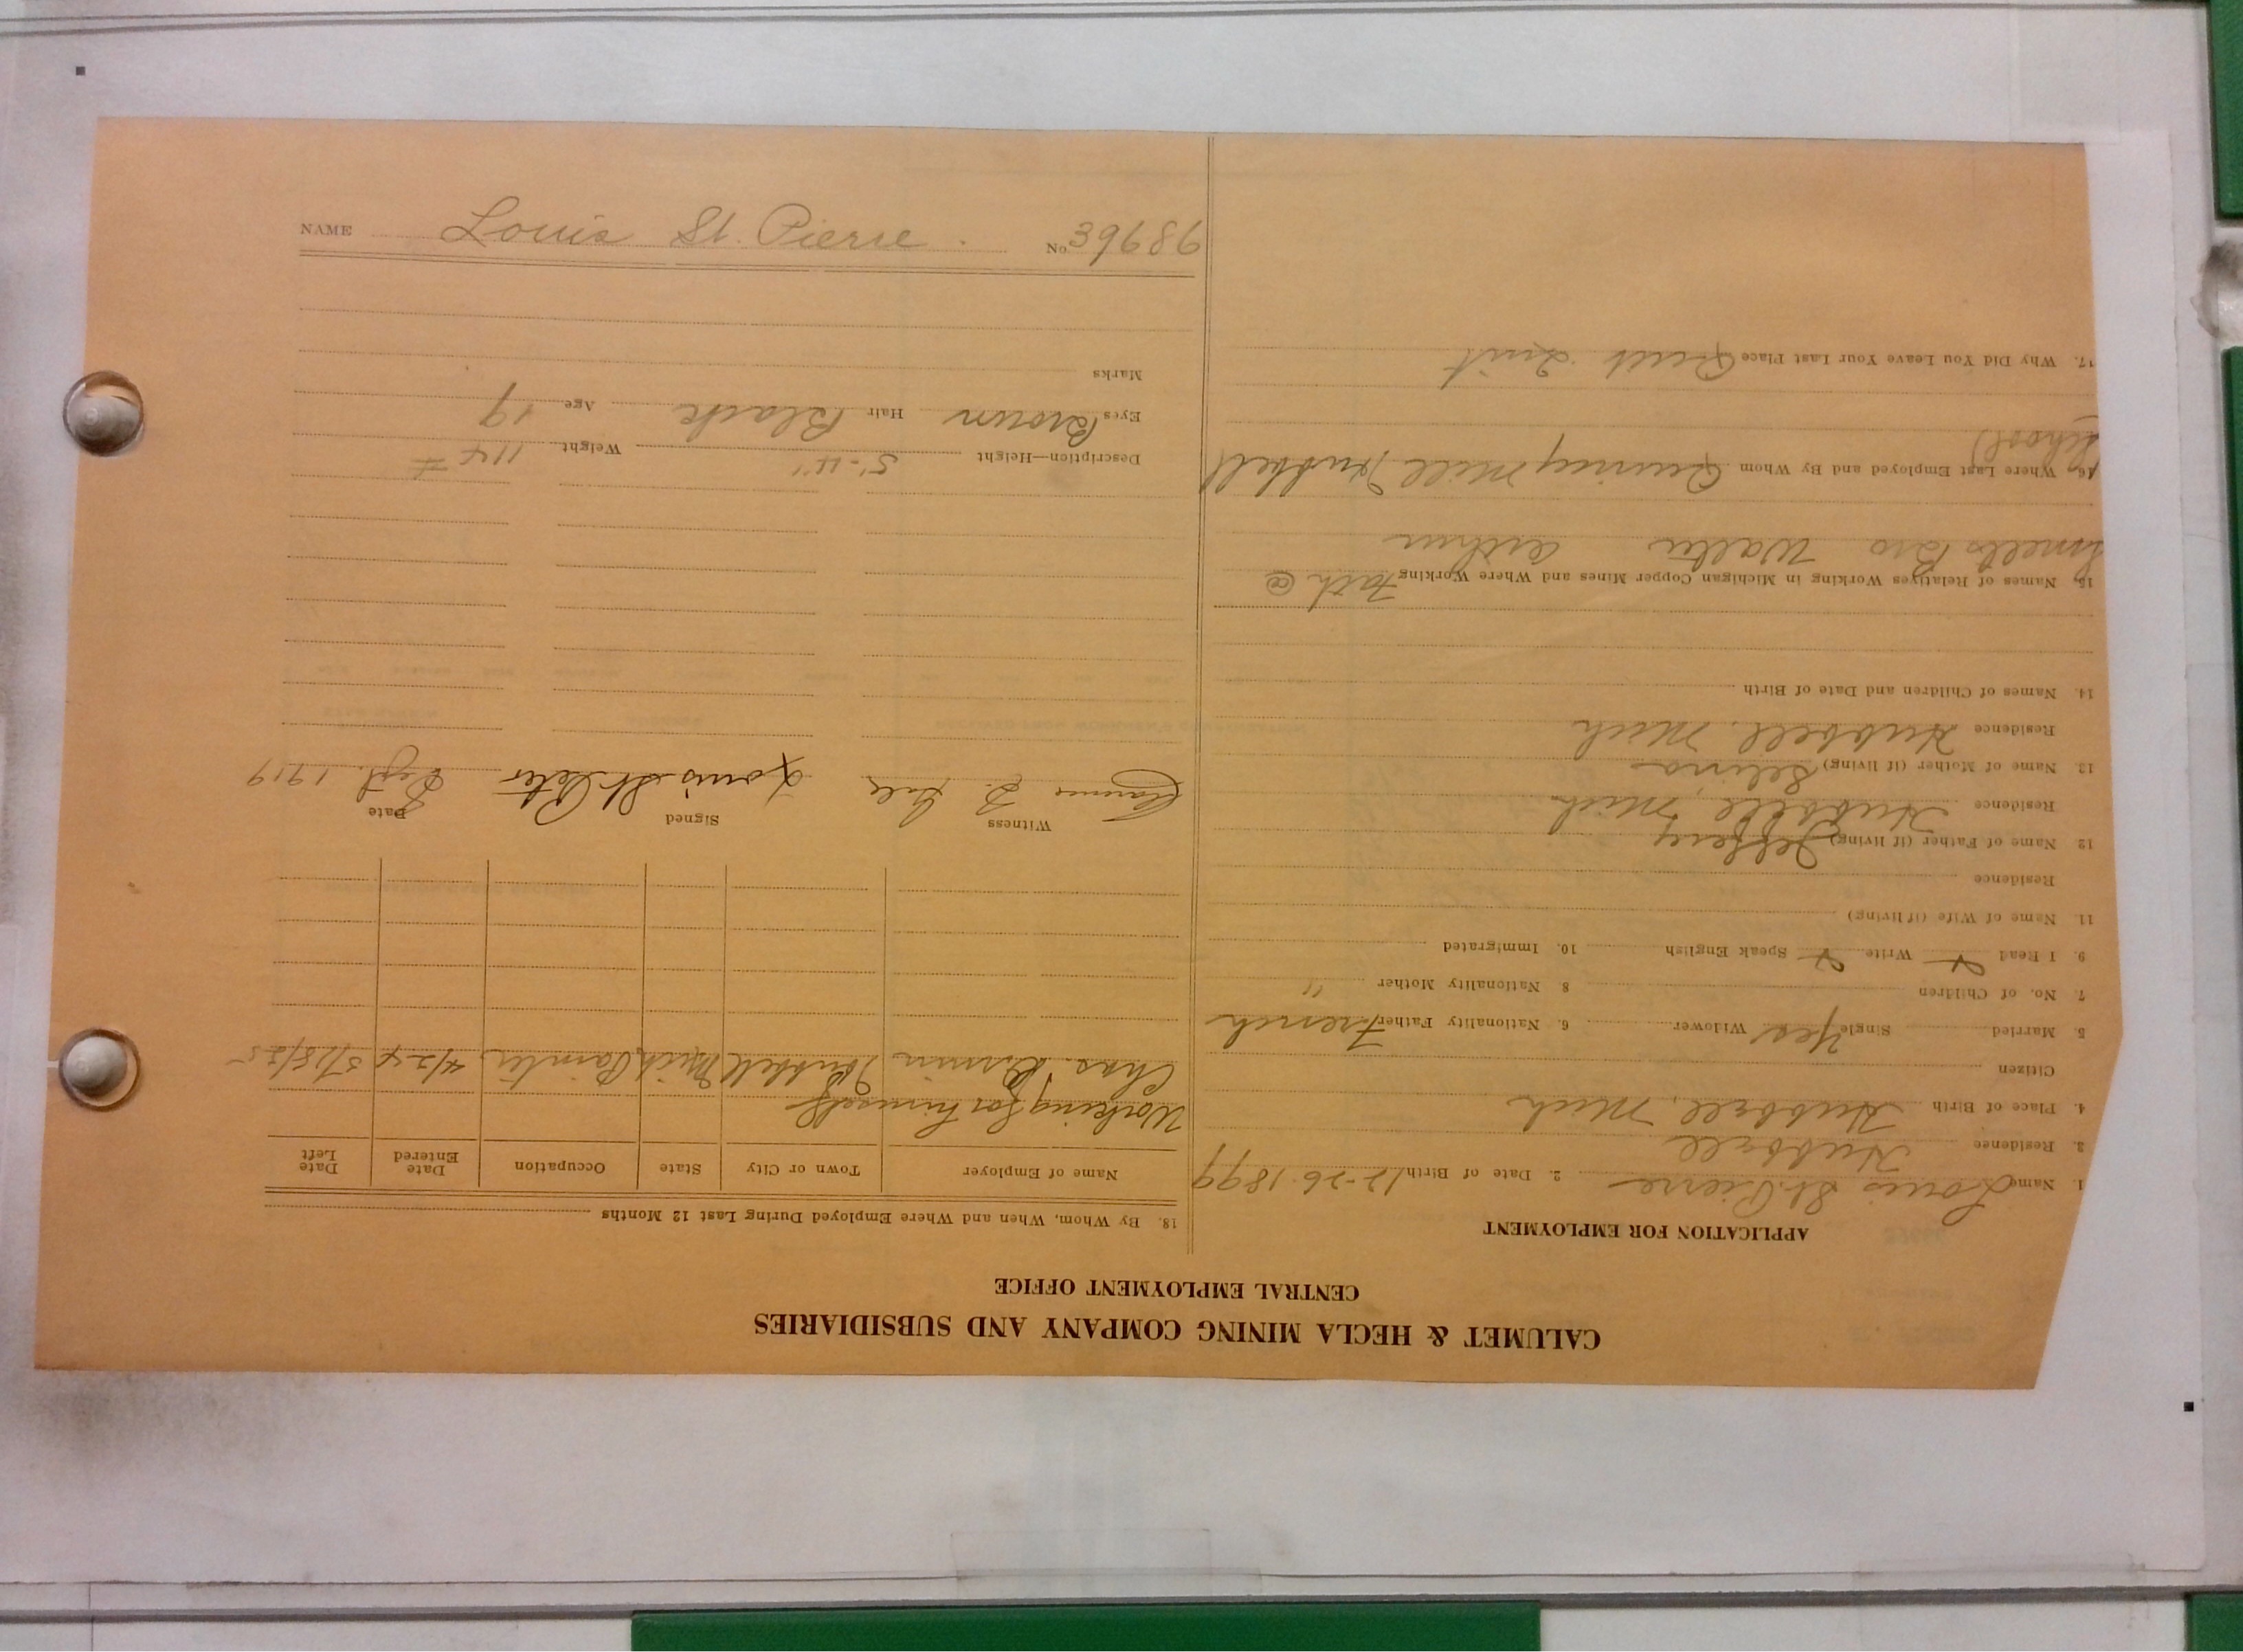 CALUMET & HECLA MINING COMPANY AND SUBSIDIARIES
CENTRAL EMPLOYMENT OFFICE
APPLICATION FOR EMPLOYMENT
1. Name Louis St. Pierre 2. Date of Birth 12-26-1899
3. Residence Hubbell
4. Place of Birth Hubbell, Mich
Citizen
5. Married Single Yes Widower 6. Nationality Father French
7. No. of Children 8. Nationality Mother "
9. I Read Write Speak English 10. Immigrated
11. Name of Wife (if living)
Residence
12. Name of Father (if living) Jeffery
Residence Hubbell, Mich
13. Name of Mother (if living) Selina
Residence Hubbell, Mich
14. Names of Children and Date of Birth
15. Names of Relatives Working in Michigan Copper Mines and Where Working Fath @
Smelts Bro Walter Arthur
16. Where Last Employed and By Whom Quincy Mill Hubbell
School)
17. Why Did You Leave Your Last Place Quit
18. By Whom, When and Where Employed During Last 12 Months
Name of Employer Town or City State Occupation Date Entered Date Left
Working for himself
Chas. Hubbell Mich Painter 4/24 5/18/25
Witness Signed Date
Clarence D. Louis St Peter Sept. 1919
Description—Height 5'-4" Weight 114 #
Eyes Brown Hair Black Age 19
Marks
NAME Louis St. Pierre. No. 39686